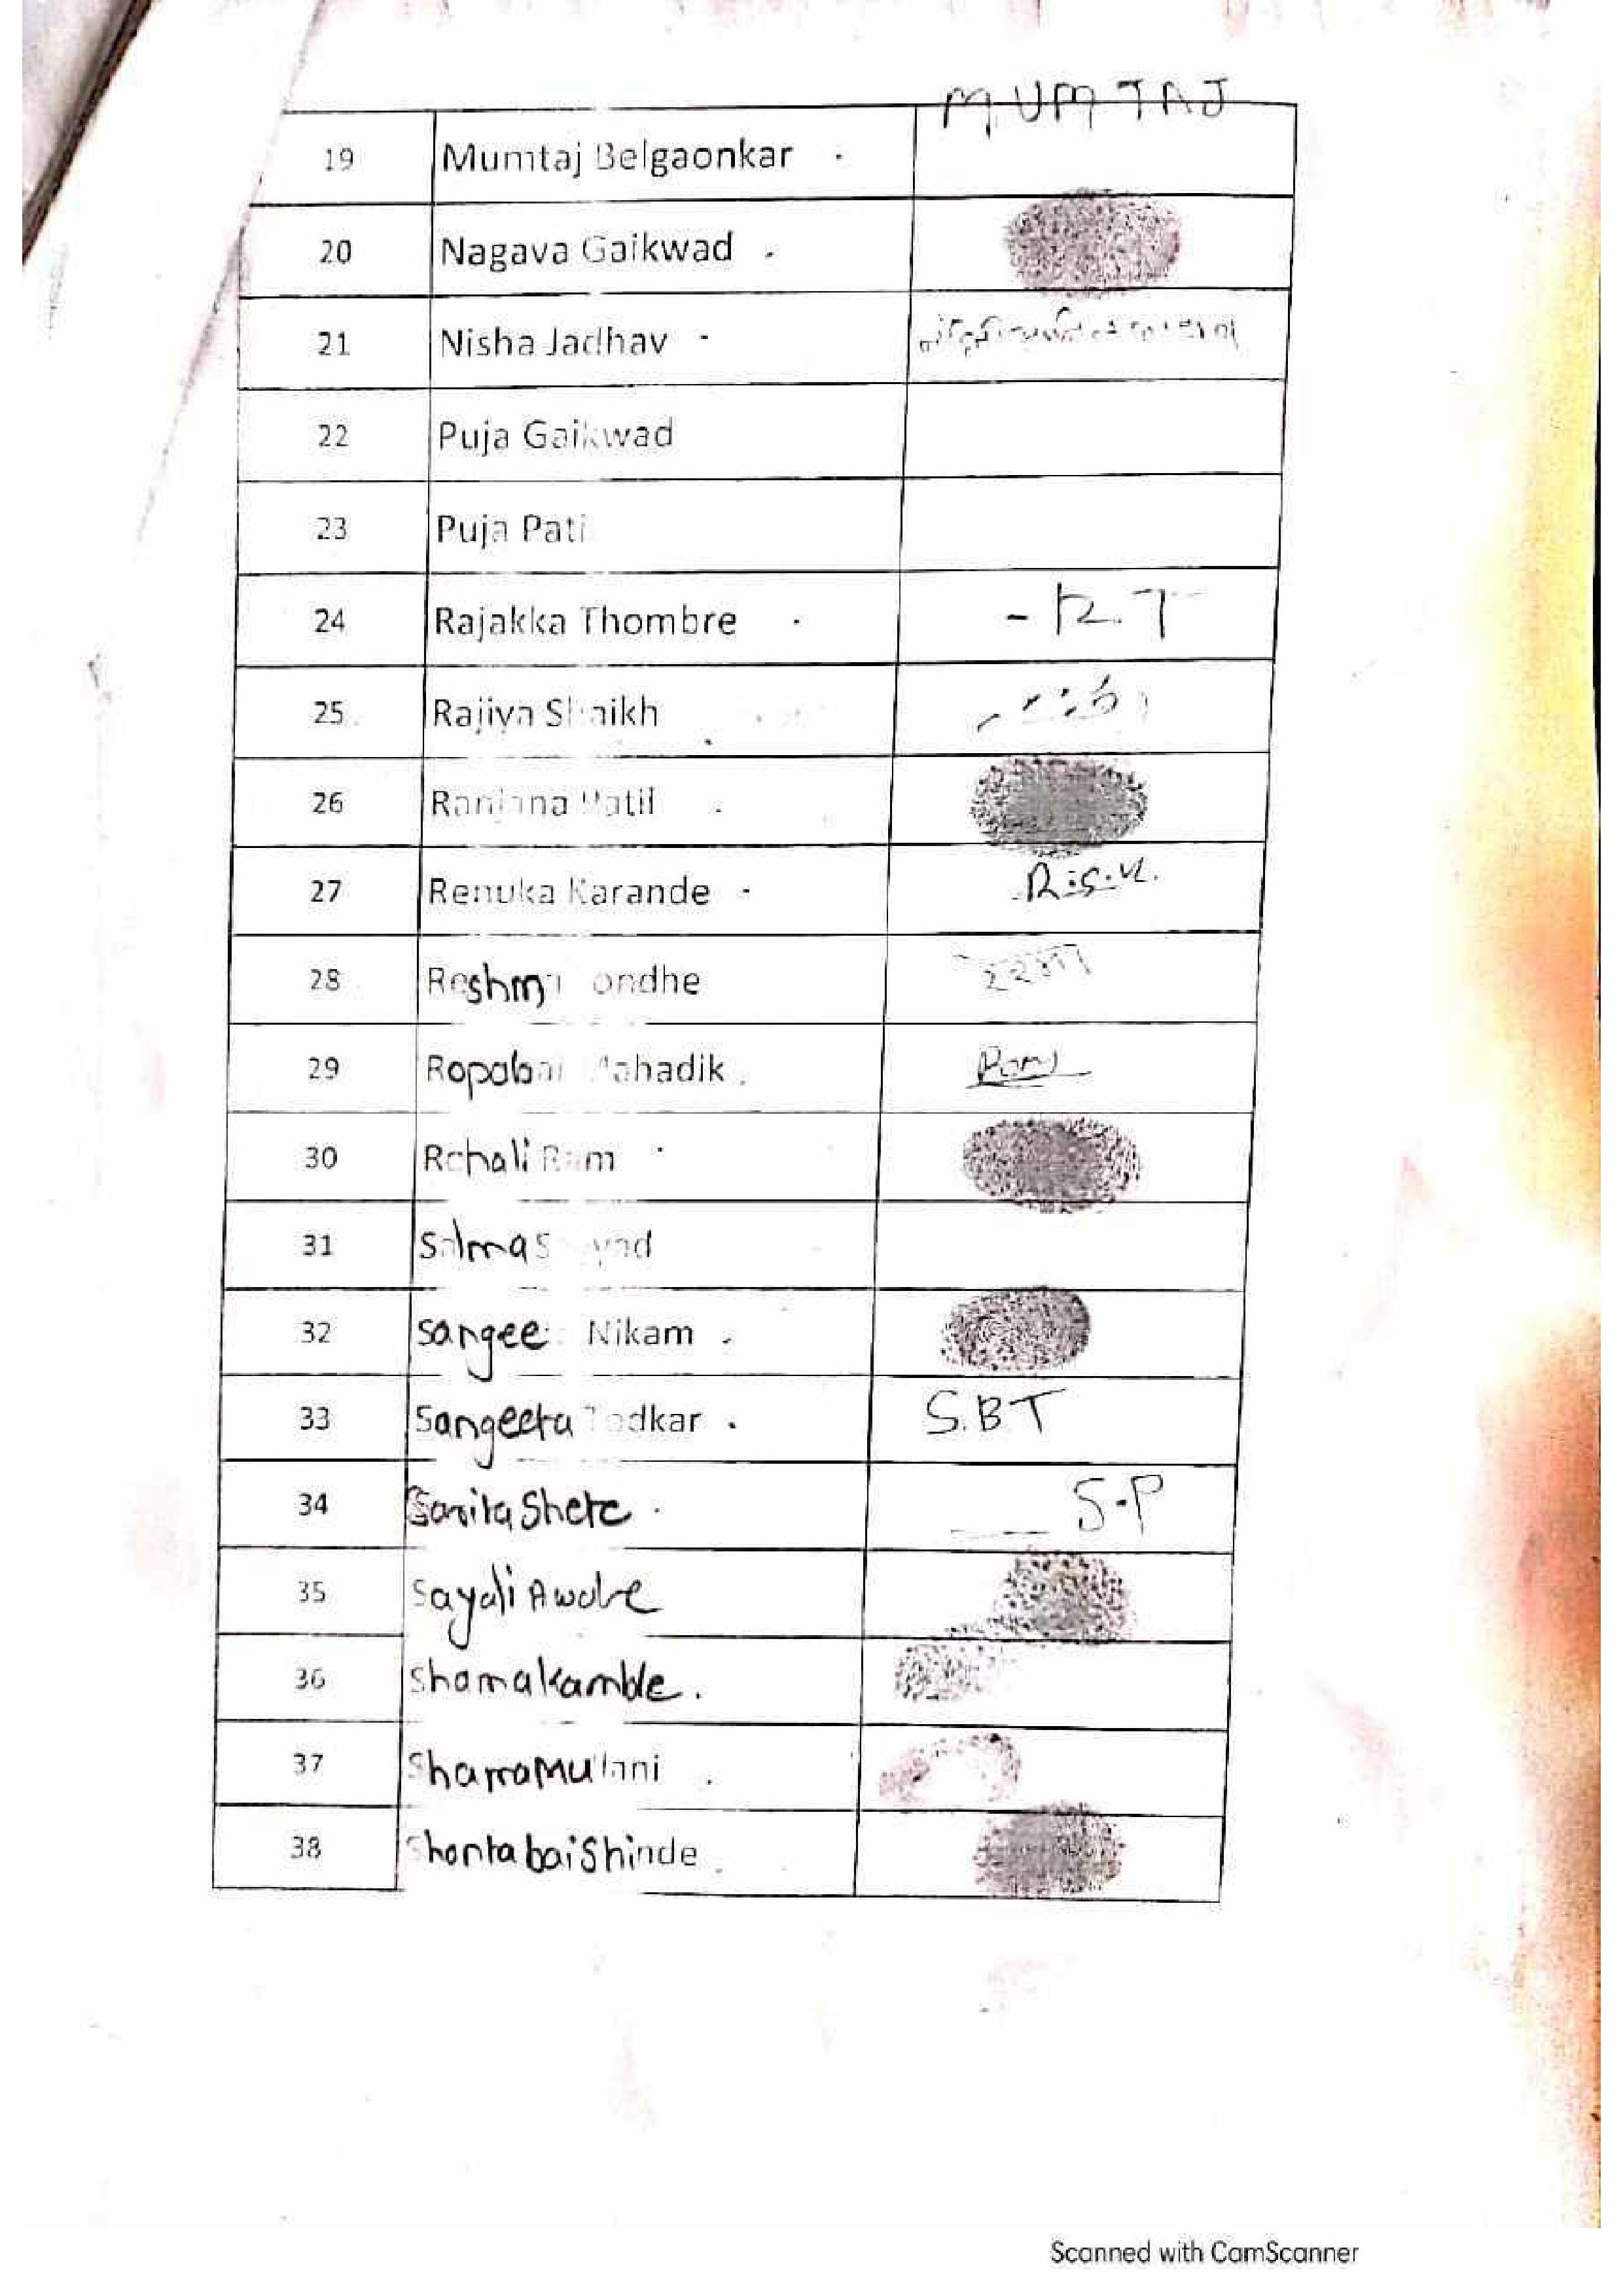 MUMTAJ
19 Mumtaj Belgaonkar
20 Nagava Gaikwad
21 Nisha Jadhav
22 Puja Gaikwad
23 Puja Pati
24 Rajakka Thombre - R.T
25 Rajiya Shaikh
26 Ranjana Patil
27 Renuka Karande
28 Reshma ondhe
29 Ropabai Mahadik
30 Ram
31 Salma
32 Sangee Nikam
33 Sangeeta Todkar S.B.T
34 Shete S-P
35 Sayali
36 Shama Kamble.
37 Shama Mulani
38 Shantabai Shinde
Scanned with CamScanner